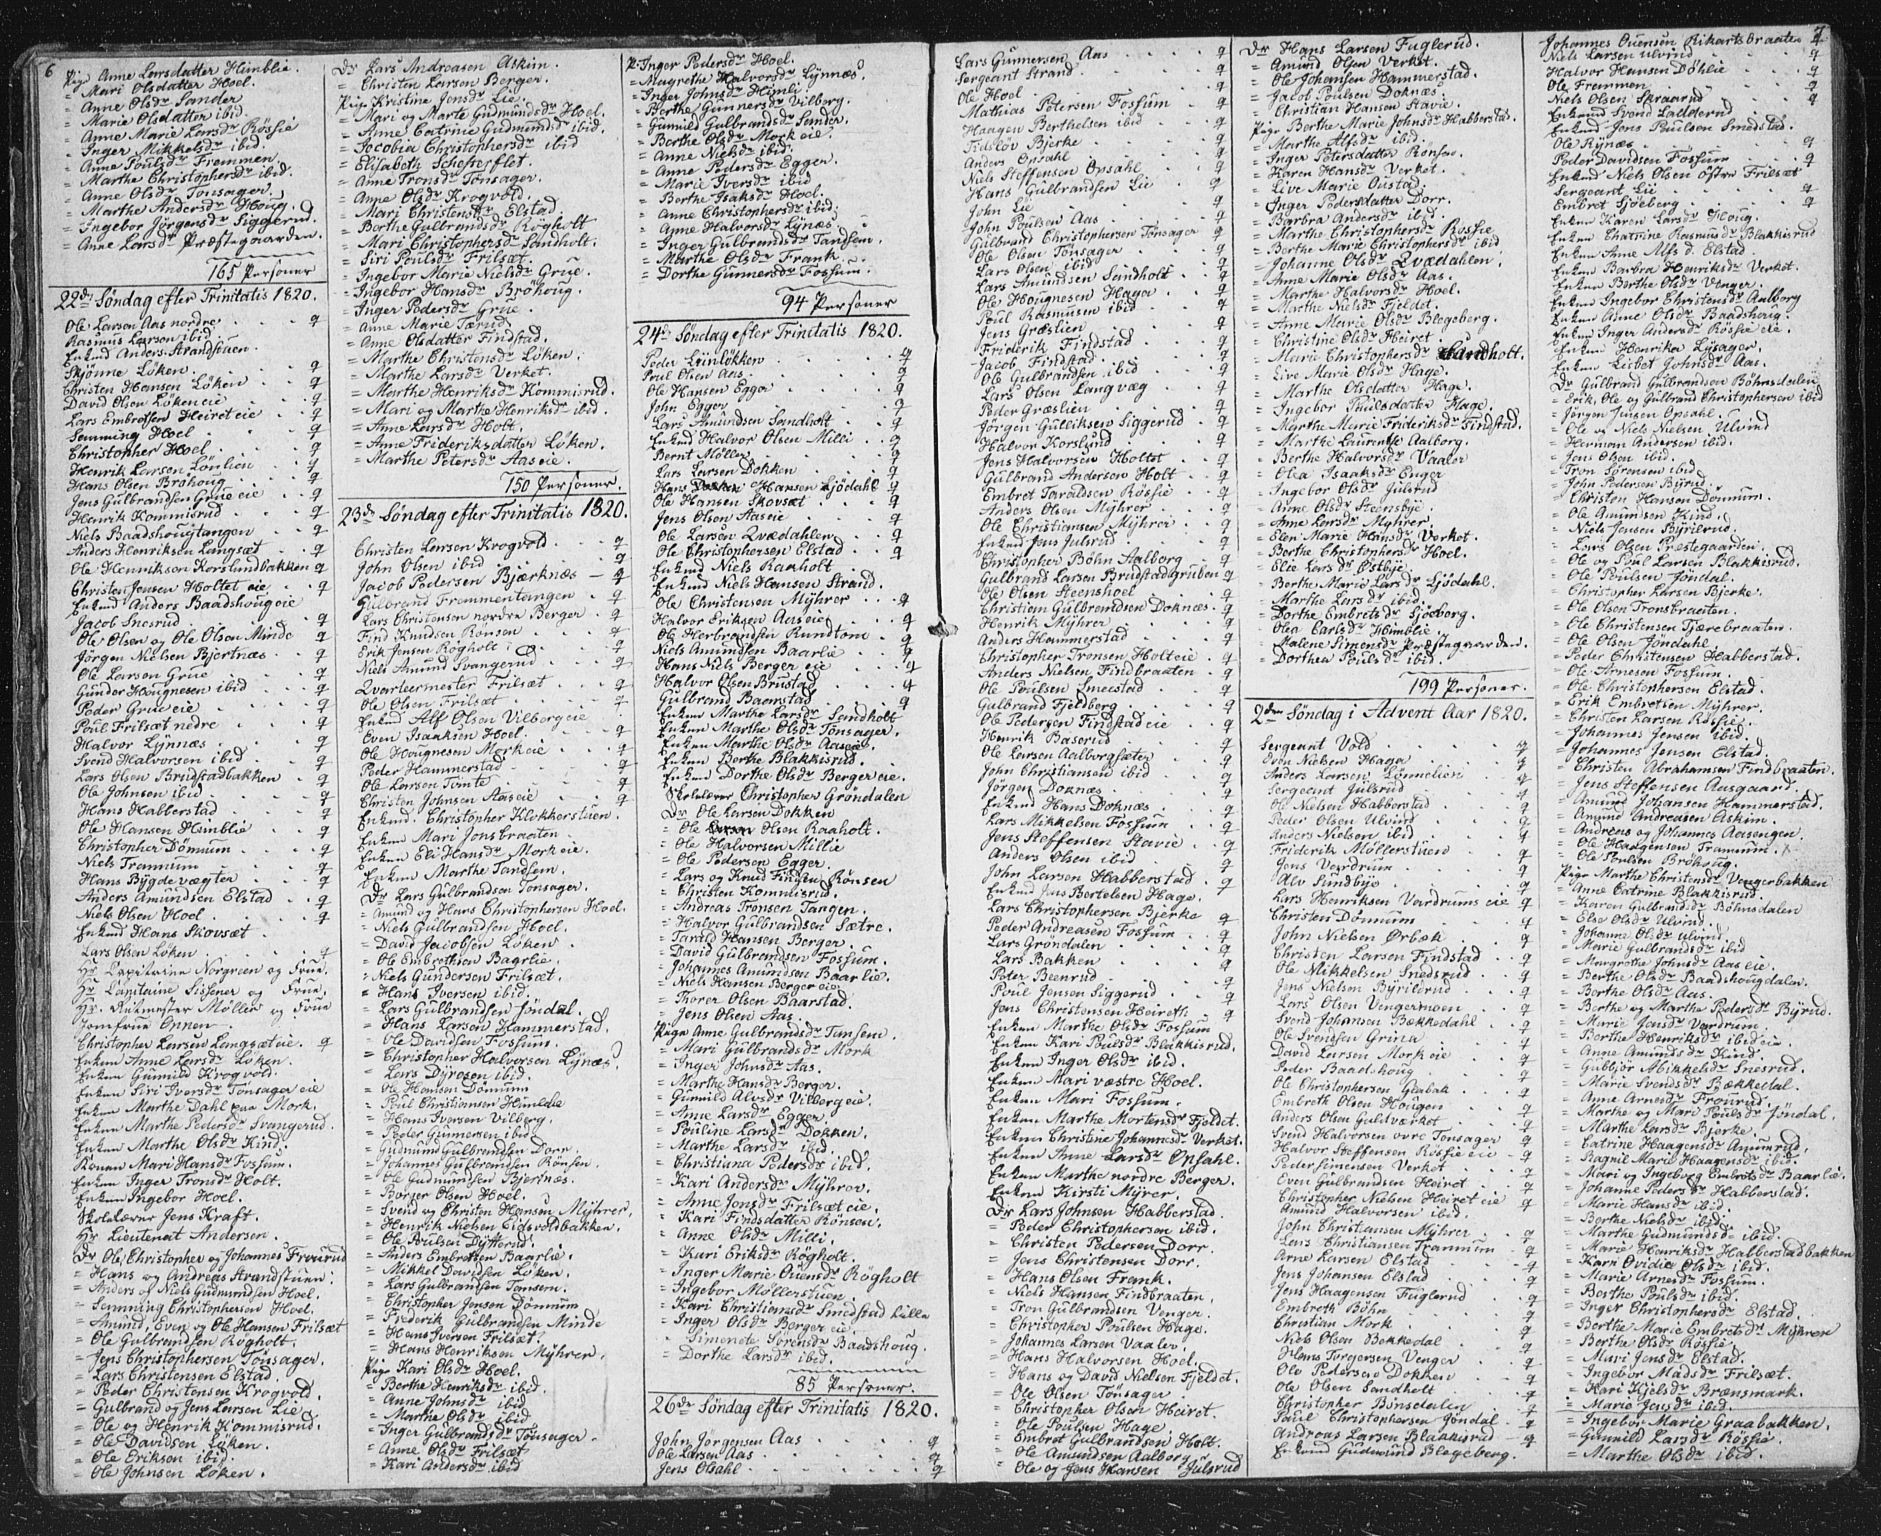 6
Pige Anne Larsdatter Himblie.
= Mari Olsdatter Hoel.
= Anne Olsdr Sander
= Marie Olsdatter ibid.
= Anne Marie Larsdr Rössie
= Inger Mikkelsdr ibid.
= Anne Poulsdr Fremmen.
= Marthe Christophersdr ibid.
= Anne Olsdr Tonsager.
= Marthe Andersdr Houg.
= Ingebor Jörgensdr Siggerud.
= Anne Larsdr Præstegaarden.
165 Personer
22de Söndag efter Trinitatis 1820.
Ole Larsen Aas nordre . . . g
Rasmus Larsen ibid
Enkmd Anders Strandstuen.
Skjönne Löken . . . g
Christen Hansen Löken . . g
David Olsen Löken eie . . g
Lars Embretsen Heiret eie . g
Semming Hoel . . . g
Christopher Hoel . . . g
Henrik Larsen Lönlien . . g
Hans Olsen Brohoug . . . g
Jens Gulbrandsen Grue eie . g
Henrik Kommisrud . . g
Niels Baadshougtangen . . g
Anders Henriksen Langsæt . . g
Ole Henriksen Korslundbakken g
Christen Jensen Holtet eie . . g
Enkmd Anders Baadshoug eie
Jacob Inesrud . . . g
Ole Olsen og Ole Olsen Minde g
Jörgen Nielsen Bjertnæs . . g
Ole Larsen Grue . . . g
Gunder Hougnesen ibid . . g
Peder Grue eie . . . g
Poul Frilsæt nedre . . . g
Halvor Lynnæs . . . g
Svend Halvorsen ibid . . g
Lars Olsen Bridstadbakken . g
Ole Johnsen ibid . . . g
Hans Habberstad . . . g
Ole Hansen Himblie . . g
Christopher Dömnum . . g
Niels Tramnum . . . g
Hans Bygdevægter . . . g
Anders Amundsen Elstad . . g
Niels Olsen Hoel . . . g
Enkmd Hans Skovsæt .
Lars Olsen Löken . . . g
Hr Capitaine Norgreen og Frue.
Hr Capitaine Sissener og Frue,
Hr. Ritmester Möller og Frue
Jomfrue Onnen
Christopher Larsen Langsæt eie . g
Enken Anne Larsdr Löken.
Enken Gunild Krogvold.
Enken Siri Iversdr Tonsager eie
Enken Marthe Dahl paa Mork.
Enken Marthe Pedersdr Svangerud.
Enken Marthe Olsdr Kind.
Konen Mari Hansdr Fossum.
Enken Inger Tronsdr Holt.
Enken Ingebor Hoel.
Skolelærer Jens Kraft.
Hr Lieutenat Andersen.
Dr Ole, Christopher og Johannes Frourud
= Hans og Andreas Strandstuen:
= Anders og Niels Gudmundsen Hoel.
= Semming Christophersen Hoel.
= Amund, Even og Ole Hansen Frilsæt
= Ole Gulbrandsen Rögholt.
= Jens Christophersen Tönsager.
= Lars Christensen Elstad.
= Peder Christensen Krogvold.
= Gulbrand og Jens Larsen Lie.
= Ole og Henrik Kommisrud.
= Ole Davidsen Löken.
= Ole Eriksen ibid.
= Ole Johnsen Löken.
Dr Lars Andreasen Askim.
= Christen Larsen Berger.
Pige Kristine Jensdr Lie.
= Mari og Marte Gudmundsdr Hoel.
= Anne Catrine Gudmundsdr ibid.
= Jocobia Christophersdr ibid
= Elisabeth Schefteflot.
= Anne Tronsdr Tonsager.
= Anne Olsdr Krogvold.
= Mari Christensdr Elstad.
= Berthe Gulbrandsdr Rögholt
= Mari Christophersdr Sandholt.
= Siri Poulsdr Frilsæt.
= Ingebor Marie Nielsdr Grue.
= Ingebor Hansdr Bröhoug.
= Inger Pedersdr Grue.
= Anne Marie Tærud.
= Anne Olsdatter Findstad.
= Marthe Christensdr Löken.
= Marthe Larsdr Verket.
= Marthe Henriksdr Kommisrud.
= Mari og Marthe Henriksdr ibid.
= Anne Larsdr Holt.
= Anne Frideriksdatter Löken.
= Marthe Petersdr Aas eie.
150 Personer.
23de Söndag efter Trinitatis 1820.
Christen Larsen Krogvold . . g
John Olsen ibid . . . g
Jacob Pedersen Bjærknæs — g
Gulbrand Fremmentangen . g
Lars Christensen nordre Berger . g
Find Knudsen Rönsen . . g
Erik Jensen Rögholt . . g
Niels Amund Svangerud . . g
Qvarteermester Frilsæt . . g
Ole Olsen Frilsæt . . . g
Enkmd Alf Olsen Vilberg eie
Even Isaaksen Hoel . . . g
Ole Hougnesen Mork eie . . g
Peder Hammerstad . . . g
Ole Larsen Tomte . . . g
Christen Johnsen Aas eie . . g
Enkmd Christopher Klokkerstuen.
Enken Mari Jonsbraaten
Enken Eli Hansdr Mork eie.
Enken Marthe Tandsem.
Dr Lars Gulbrandsen Tonsager.
= Amund og Hans Christophersen Hoel.
= Niels Gulbrandsen Hoel.
= David Jacobsen Löken.
= Ole Embretsen Bagrlie.
= Niels Gundersen Frilsæt.
= Hans Iversen ibid.
= Lars Gulbrandsen Jöndal.
= Hans Larsen Hammerstad.
= Ole Davidsen Fossum.
= Christopher Halvorsen Lynæs.
= Lars Dyresen ibid.
= Ole Hansen Dömnum
= Poul Christiansen Himblie
= Hans Iversen Vilberg.
= Peder Gunnersen ibid
= Gudmund Gulbrandsen Dorr.
= Johannes Gulbrandsen Rönsen.
= Ole Gudmundsen Bjertnæs.
= Börger Olsen Hoel.
= Svend og Christen Hansen Myhrer.
= Henrik Nielsen Eidsvoldsbakken.
= Ole Poulsen Dytterud.
= Anders Embretsen Baarlie.
= Mikkel Davidsen Löken.
= Lars Gulbrandsen Tansem.
= Christopher Jensen Dömnum
= Frederik Gulbrandsen Minde
= Hans Iversen Frilsæt.
= Hans Henriksen Myhrer.
Pige Kari Olsdr Hoel.
= Berthe Henriksdr ibid.
= Anne Johnsdr ibid
= Marthe Olsdr ibid
= Inger Gulbrandsdr Tönsager.
= Anne Olsdr Frilsæt
= Kari Andersdr ibid
P. Inger Pedersdr Hoel.
= Magrethe Halvorsdr Lynnæs.
= Inger Johnsdr Himli
= Berthe Gunnersdr Vilberg.
= Gunild Gulbrandsdr Sander.
= Berthe Olsdr Mork eie.
= Anne Nielsdr ibid.
= Anne Pedersdr Egger.
= Marie Iversdr ibid
= Berthe Isaksdr Hoel.
= Anne Christophersdr ibid.
= Anne Halvorsdr Lynæs.
= Inger Gulbrandsdr Tandsem.
= Marthe Olsdr Frank.
= Dorthe Gunnersdr Fossum.
94 Personer
24de Söndag efter Trinitatis 1820.
Peder Leinlökken . . . g
Poul Olsen Aas . . . g
Ole Hansen Egger . . . g
John Egger . . . g
Lars Amundsen Sandholt . . g
Enkmd Halvor Olsen Milli . . g
Bernt Möller . . . g
Lars Larsen Dokken . . . g
Hans Hansen Ljödahl g
Ole Hansen Skovsæt . . g
Jens Olsen Aas eie . . . g
Ole Larsen Qvædahlen . . g
Ole Christophersen Elstad . . g
Enkmd Niels Raaholt
Enkmd Niels Hansen Strand.
Ole Christensen Myhrer . . g
Halvor Eriksen Aas eie . . g
Ole Herbrandsen Rundtom . g
Niels Amundsen Baarlie . . g
Hans Niels Berger eie . . g
Halvor Olsen Brustad . . g
Gulbrand Baarstad . . . g
Enken Marthe Larsdr Sandholt
Enken Marthe Olsdr Tönsager.
Enken Marthe Olsdr Aas eie.
Enken Berthe Blakkisrud.
Enken Dorthe Olsdr Berger eie.
Skolelærer Christopher Gröndalen
Dr Ole Larsen Dokken
= Ole Olsen Raaholt.
= Ole Halvorsen Millie
= Ole Pedersen Egger.
= Lars og Knud Findsen Rönsen
= Christen Kommisrud.
= Andreas Tronsen Tangen.
= Halvor Gulbrandsen Sætre.
= Tarald Hansen Berger.
= David Gulbrandsen Fossum.
= Johannes Amundsen Baarlie.
= Niels Hansen Berger eie
= Thorer Olsen Baarstad.
= Jens Olsen Aas.
Pige Anne Gulbrandsdr Tansem.
= Mari Gulbrandsdr Mork
= Inger Johnsdr Aas.
= Marthe Hansdr Berger.
= Gunild Alvsdr Vilberg eie.
= Anne Larsdr Egger
= Pouline Larsdr Dokken.
= Marthe Larsdr ibid.
= Christiana Pedersdr ibid.
= Kari Andersdr Myhrer.
= Anne Jensdr Frilsæt eie.
= Kari Findsdatter Rönsen.
= Anne Olsdr Milli.
= Kari Eriksdr Rögholt.
= Inger Marie Ouensdr Rögholt
= Ingebor Möllerstuen.
= Kari Christiansdr Smedstad lille
= Inger Olsdr Berger eie.
= Simenete Sörensdr Baadshoug.
= Dorthe Larsdr ibid.
85 Personer.
26de Söndag efter Trinitatis 1820.
John Jörgensen Aas . . . g
Ole Larsen Aas . . . g
Jens Olsahl . . . g
Lars Gunnersen Aas . . . g
Sergeant Strand . . . g
Ole Hoel . . . g
Mathias Petersen Fossum . . g
Haagen Berthelsen ibid . . g
Tidslöv Bjerke . . . g
Anders Opsahl . . . g
Niels Steffensen Opsahl . . g
Hans Gulbrandsen Lie . . g
John Lie . . . g
John Poulsen Aas . . . g
Gulbrand Christophersen Tönsager g
Ole Olsen Tönsager . . . g
Lars Olsen ibid . . . g
Lars Amundsen Sandholt . . g
Ole Hougnesen Haga . . g
Poul Rasmusen ibid . . . g
Jens Græslien . . . g
Friderik Findstad . . . g
Jacob Findstad . . . g
Ole Gulbrandsen ibid . . g
Lars Olsen Langvæg . . g
Peder Græslien . . . g
Jörgen Gulliksen Siggerud . g
Halvor Korslund . . . g
Jens Halvorsen Holtet . . g
Gulbrand Andersen Holt . . g
Embret Taraldsen Rössie . . g
Anders Olsen Myhrer . . g
Ole Christiansen Myhrer . . g
Enkmd Jens Julsrud . . g
Christopher Böhn Aalborg . . g
Gulbrand Larsen Brudstadgruben g
Ole Olsen Steenshoel . . g
Christian Gulbrandsen Doknæs . g
Henrik Myhrer . . . g
Anders Hammerstad . . g
Christopher Tronsen Holt eie . g
Anders Nielsen Findbraaten . g
Ole Poulsen Smestad . . g
Gulbrand Fjeldberg . . g
Ole Pedersen Findstad eie . g
Henrik Baserud . . . g
Ole Larsen Aalborgsæter . . g
John Christiansen ibid . . g
Jörgen Doknæs . . . g
Enkmd Hans Doknæs . . g
Lars Mikkelsen Fossum . . g
Jens Steffensen Stavie . . g
Anders Olsen ibid . . . g
John Larsen Habberstad . . g
Enkmd Jens Bertelsen Hage.
Lars Christophersen Bjerke . g
Peder Andreasen Fossum . . g
Lars Gröndalen . . . g
Lars Bakken . . . g
Peter Beenrud . . . g
Poul Jensen Siggerud . . g
Jens Christensen Heireth . . g
Enken Marthe Olsdr Fossum
Enken Kari Poulsdr Blakkisrud.
Enken Inger Olsdr ibid.
Enken Mari væstre Hoel.
Enken Mari Fossum.
Enken Marthe Mortensdr Fjeldet.
Enken Christine Johannesdr Verket.
Enken Anne Larsdr Opsahl.
Enken Marthe nordre Berger.
Enken Kirsti Myrer.
Dr Lars Johnsen Habberstad.
= Peder Christophersen ibid.
= Christen Pedersen Dorr.
= Jens Christensen Dorr.
= Hans Olsen Frank.
= Niels Hansen Findbraaten.
= Tron Gulbrandsen Venger.
= Christopher Poulsen Hage.
= Johannes Larsen Vaaler.
= Hans Halvorsen Hoel.
= Hans og David Nielsen Fjeldet.
= Ole Olsen Tönsager.
= Christopher Olsen Heiret.
= Ole Poulsen Hage.
= Embret Gulbrandsen Holt.
= Ole Amundsen Aalborg.
= Ole og Jens Hansen Julsrud
Dr Hans Larsen Fuglerud.
= Amund Olsen Verket.
= Ole Johansen Hammerstad.
= Jacob Poulsen Doknæs.
= Christian Hansen Stavie.
Pige Berthe Marie Johnsdr Habberstad.
= Marthe Alfsdr ibid.
= Inger Petersdatter Rönsen.
= Karen Hansdr Verket.
= Live Marie Oustad.
= Inger Pedersdatter Dorr.
= Barbra Andersdr ibid.
= Marthe Christophersdr Rossie
= Berthe Marie Christophersdr ibid
= Johanne Olsdr Qvædahlen.
= Anne Marie Olsdr Aas.
= Marthe Halvorsdr Hoel.
= Marthe Nielsdr Fjeldet.
= Anne Marie Olsdr Blegeberg.
= Christine Olsdr Heiret.
= Marie Christophersdr Sandholt.
= Live Marie Olsdr Hage.
= Marthe Olsdatter Hage.
= Ingebor Poulsdatter Hage.
= Marthe Marie Frideriksdr Findstad.
= Marthe Laurentse Aalborg.
= Berthe Halvorsdr Vaaler
= Olea Isaaksdr Enger
= Ingebor Olsdr Julsrud
= Anne Olsdr Steensbye.
= Anne Larsdr Myhrer.
= Elen Marie Hansdr Verket.
= Berthe Christophersdr Hoel.
= Elie Larsdr Østbye.
= Berthe Marie Larsdr Ljödahl.
= Marthe Larsdr ibid.
= Dorthe Embretsdr Sjöeborg.
= Olea Carlsdr Himblie.
= Malene Simensdr Præstegaarden.
= Dorthea Poulsdr ibid.
199 Personer.
2den Söndag i Advent Aar 1820.
Sergeant Vold . . . g
Even Nielsen Haga . . . g
Anders Larsen Lönnelien . . g
Sergeant Julsrud . . . g
Ole Nielsen Habberstad . . g
Peder Olsen Ulvind . . . g
Anders Nielsen ibid . . g
Friderik Möllerstuen . . g
Jens Vardrum . . . g
Alv Sundbye . . . g
Lars Henriksen Vardrums eie . g
Christen Dömnum . . . g
John Nielsen Ørbæk . . g
Christen Larsen Findstad . . g
Ole Mikkelsen Snedsrud . . g
Jens Nielsen Byrilerud . . g
Lars Olsen Vengermoen . . g
Svend Johansen Bækkedahl . g
Ole Svendsen Grina . . g
David Larsen Mork eie . . g
Peder Baadshoug . . . g
Ole Christophersen Glabak . g
Embreth Olsen Hougen . . g
Anders Olsen Guldværket . . g
Svend Halvorsen ovre Tonsager . g
Halvor Steffensen Rössie eie . g
Peder Simensen Verket . . g
Even Gulbrandsen Heiret . . g
Christopher Nielsen Heiret eie . g
Amund Halvorsen ibid . . g
John Christensen Myhrer . . g
Lars Christiansen Tramnum . g
Arne Larsen Elstad . . g
Jens Johansen Elstad . . g
Jens Haagensen Fuglerud . . g
Embreth Böhn . . . g
Christian Mork . . . g
Niels Olsen Bekkedal . . g
Hans Torgersen Venger . . g
Ole Pedersen Dokken . . g
Ole Olsen Sandholt . . g
Christopher Bönsdalen . . g
Poul Christophersen Jöndal . g
Andreas Larsen Blakkisrud . g
Enkmd Gudmund Blegeberg.
7
Johannes Ouensen Rikartsbraaten g
Niels Larsen Ulvind . . g
Halvor Hansen Döhlie . . g
Ole Fremmen . . . g
Niels Olsen Skraarud . . g
Enkmd Svend Ladderud .
Enkmd Jens Poulsen Smedstad.
Ole Rynæs . . . g
Peder Davidsen Fossum . . g
Enkmd Niels Olsen östre Frilsæt
Sergeant Lie . . . g
Embret Sjöeberg . . . g
Enken Karen Larsdr Houg.
Enken Chatrine Rasmusdr Blakkisrud
Enken Anne Alfsd. Elstad.
Enken Barbra Henriksdr Verket.
Enken Berthe Olsdr Venger.
Enken Ingebor Christensdr Aalborg
Enken Anne Olsdr Baadshoug.
Enken Inger Andersdr Rössie eie.
Enken Henrika Lysager.
Enken Lisbet Johnsdr Aas.
Dr Gulbrand Gulbrandsen Böhnsdalen
= Erik, Ole og Gulbrand Christophersen ibid
= Jörgen Jensen Opsahl.
= Ole og Niels Nielsen Ulvind
= Herman Andersen ibid.
= Jens Olsen ibid.
= Tron Sörensen ibid
= John Pedersen Byrud.
= Christen Hansen Dömnum.
= Ole Amundsen Kind.
= Niels Jensen Byrilrud.
= Lars Olsen Præstegaarden.
= Ole og Poul Larsen Blakkisrud.
= Ole Poulsen Jöndal.
= Christopher Larsen Bjerke.
= Ole Olsen Tronsbraaten.
= Ole Christensen Tjærebraaten.
= Ole Olsen Jöndahl.
= Peder Christensen Habberstad.
= Ole Arnesen Fossum.
= Ole Christophersen Elstad.
= Erik Embretsen Myhrer.
= Christen Larsen Rössie.
= Johannes Jensen ibid.
= Johannes Jensen Elstad.
= Christen Abrahamsen Findbraaten.
= Jens Steffensen Aasgaard.
= Amund Johansen Hammerstad.
= Amund Andreasen Askim.
= Andreas og Johannes Aasengen.
= Ole Haagensen Tramnum.
= Ole Poulsen Bröhoug.
Pige Marthe Christensdr Vengerbakken
= Anne Catrine Blakkisrud.
= Karen Gulbrandsdr Böhnsdalen
= Else Olsdr Ulvind.
= Johanne Olsdr Ulvind
= Marie Gulbrandsdr ibid
= Margrethe Johnsdr Aas eie.
= Berthe Olsdr Baadshougdalen.
= Berthe Olsdr Aas.
= Berthe og Marthe Pedersdr Byrud.
= Marie Jensdr Vardrum.
= Berthe Henriksdr ibid eie.
= Anne Amundsdr Kind.
= Gubbjör Mikkelsdr Snesrud.
= Marie Svendsdr Bækkedal.
= Anne Arnesdr Frourud.
= Marthe og Mari Poulsdr Jöndal.
= Marthe Larsdr Bjerke.
= Catrine Haagensdr Amunrud.
= Ragnil Marie Haagensdr ibid.
= Mari og Ingebor Embretsdr Baarlie.
= Johanne Pedersdr Habberstad.
= Marie Hansdr ibid.
= Berthe Nielsdr ibid.
= Marthe Gudmundsdr ibid.
= Marie Henriksdr Habberstadbakken
= Kari Ovidia Olsdr ibid.
= Marie Arnesdr Fossum.
= Berthe Poulsdr ibid.
= Inger Christophersdr Elstad.
= Berthe Marie Embretsdr Myhrer
= Berthe Olsdr Rössie.
= Mari Jensdr Elstad.
= Ingebor Madsdr Frilsæt.
= Kari Kjelsdr Brænsmark.
= Marie Jensdr ibid.
= Ingebor Marie Graabakken.
= Gunild Larsdr Rössie.
= Marthe Olsdr ibid.